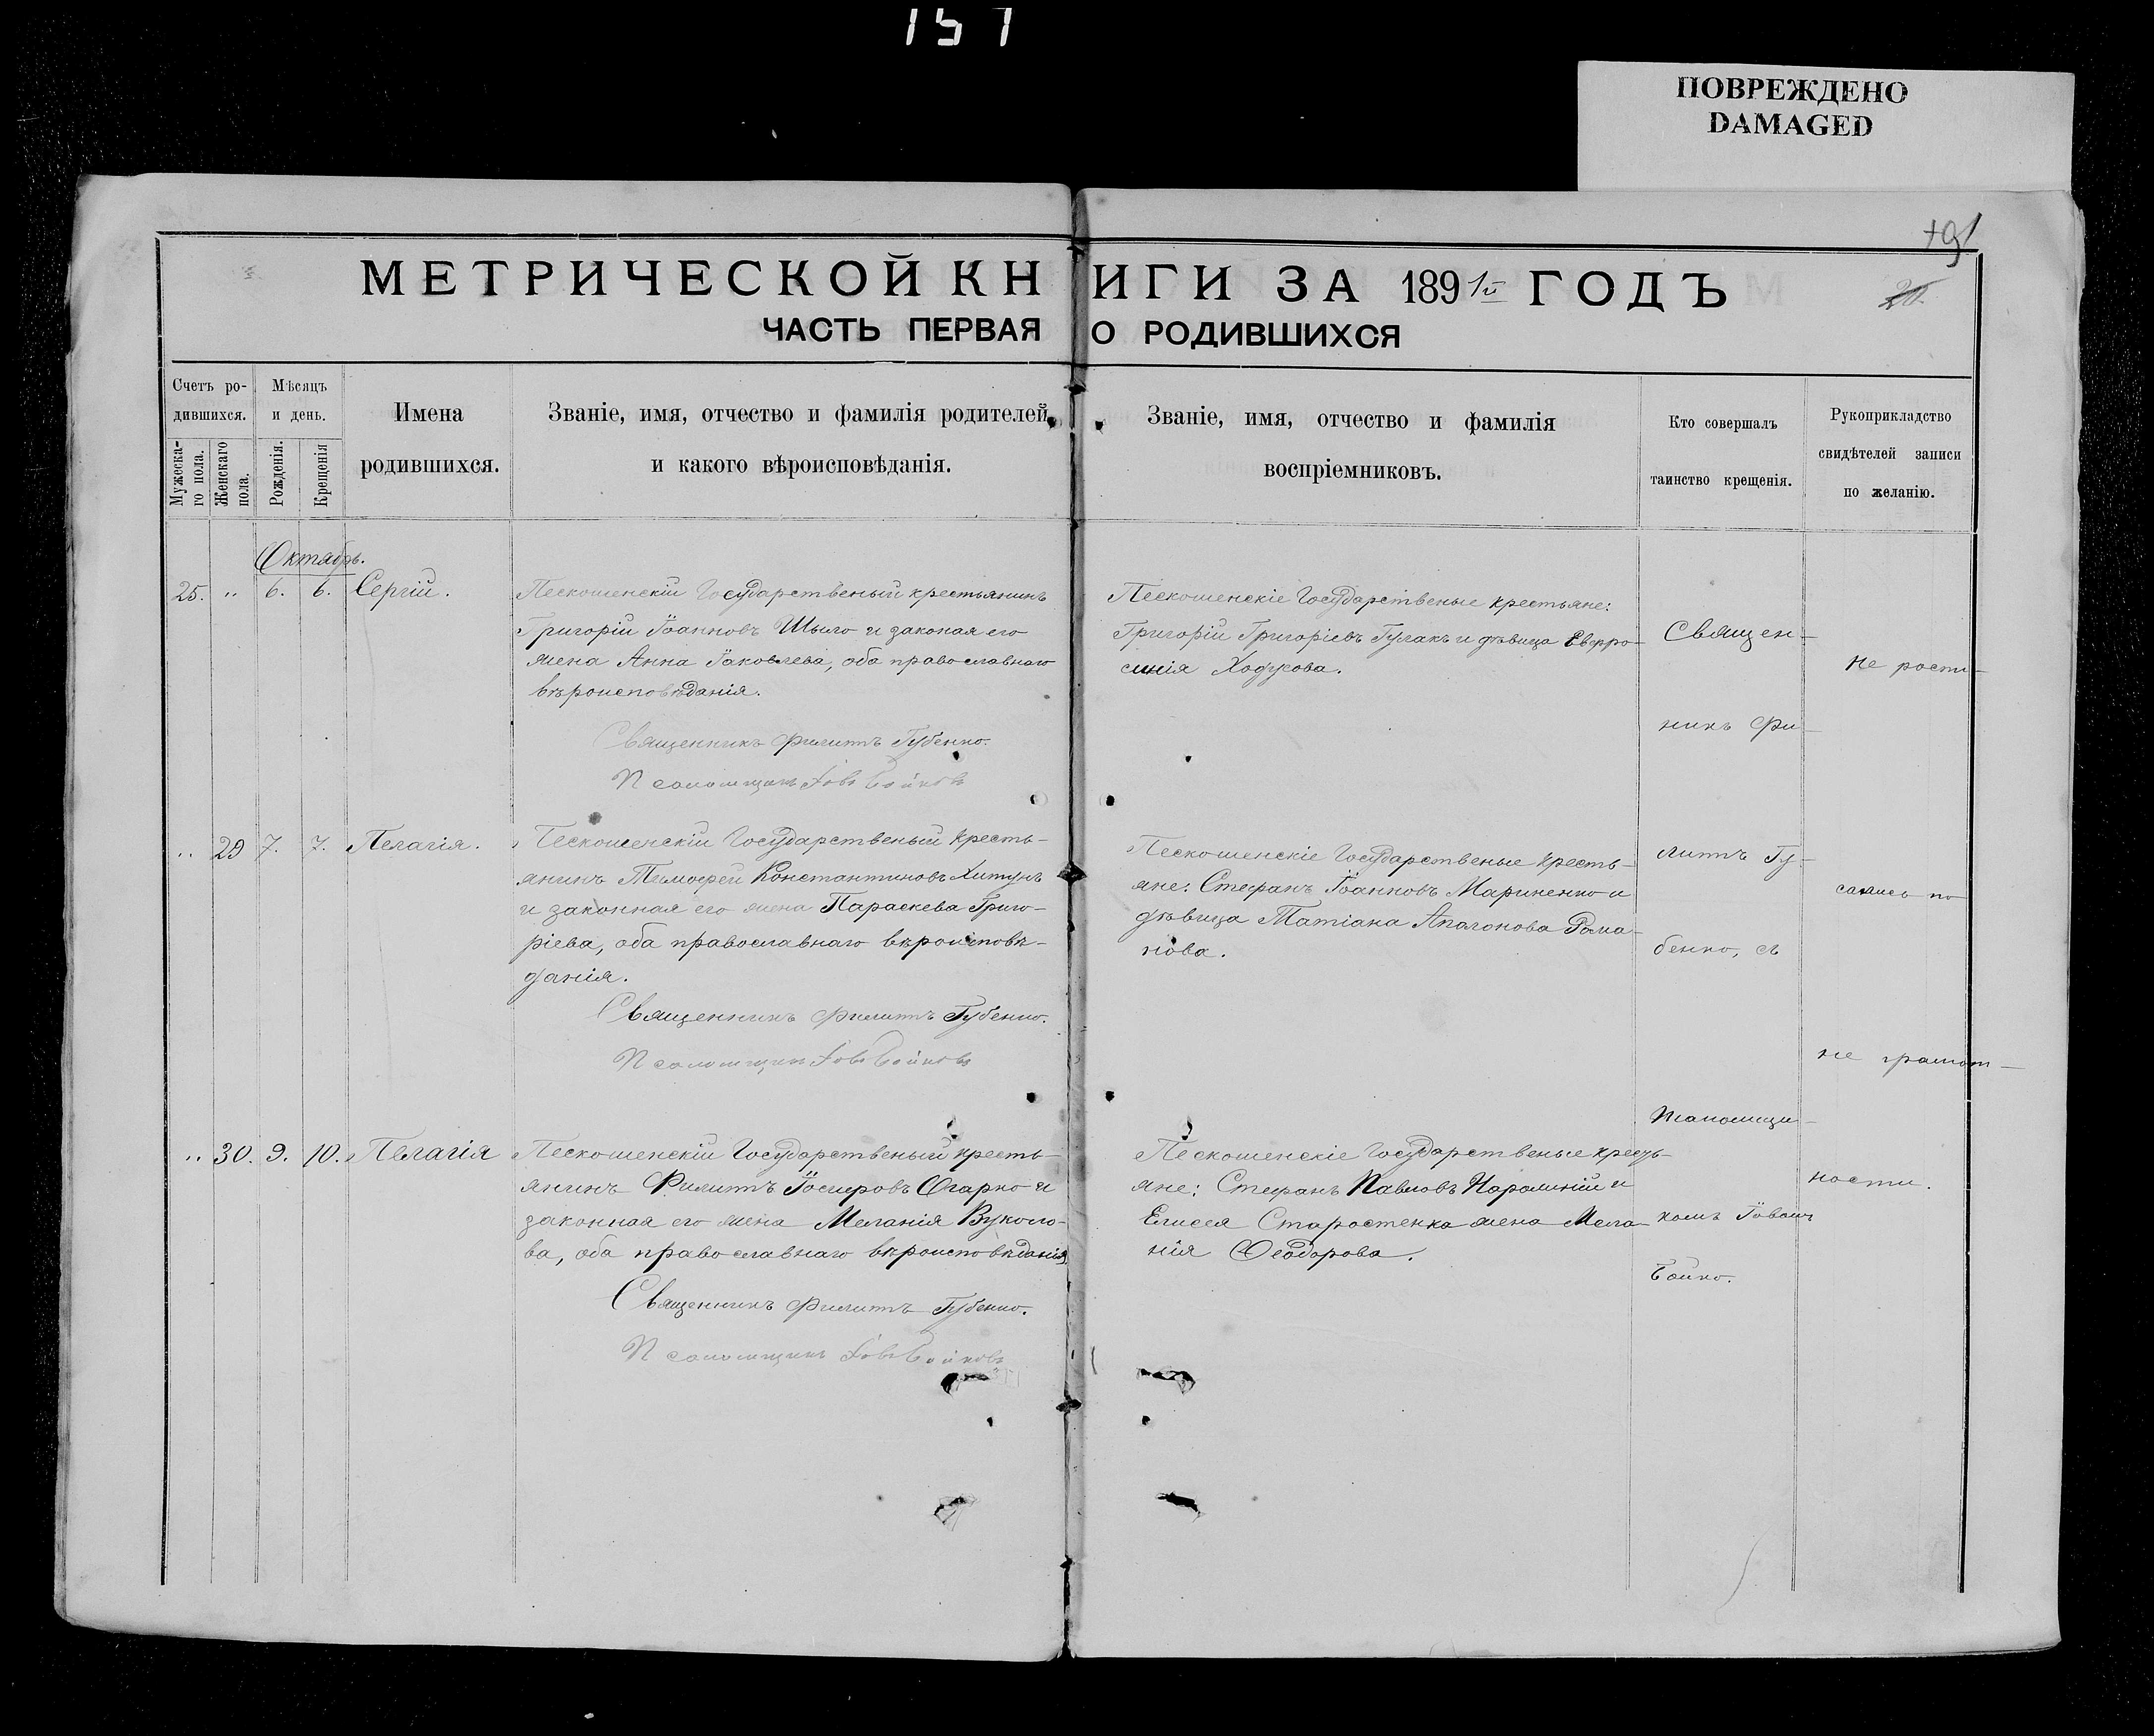 151
ПОВРЕЖДЕНО
DAMAGED
191
МЕТРИЧЕСКОЙ КНИГИ ЗА 1891й ГОДЪ
ЧАСТЬ ПЕРВАЯ О РОДИВШИХСЯ
Счетъ ро-
дившихся.
Мужеска-
го пола.
Женскаго
пола.
Мѣсяцъ
и день.
Рожденія.
Крещенія
Имена
родившихся.
Званіе, имя, отчество и фамилія родителей,
и какого вѣроисповѣданія.
Званіе, имя, отчество и фамилія
воспріемниковъ.
Кто совершалъ
таинство крещенія.
Рукоприкладство
свидѣтелей записи
по желанію.
Октябрь.
25. „ 6. 6. Сергій.
Пескошенскій Государственый крестьянинъ
Григорій Іоанновъ Шыло и законая его
жена Анна Іаковлева, оба православнаго
вѣроисповѣданія.
Священникъ Филиппъ Губенко.
Псаломщикъ Іовъ Бойковъ
Пескошенскіе Государственые крестьяне:
Григорій Григоріевъ Гулакъ и дѣвица Евфро-
синія Ходусова.
„ 29 7. 7. Пелагія.
Пескошенскій Государственый кресть-
янинъ Тимофей Константиновъ Хитунъ
и законная его жена Параскева Григо-
ріева, оба православнаго вѣроисповѣ-
данія.
Священникъ Филиппъ Губенко.
Псаломщикъ Іовъ Бойковъ
Пескошенскіе Государственые кресть-
яне: Стефанъ Іоанновъ Мариненко и
дѣвица Татіана Аполонова Рома-
нова.
„ 30. 9. 10. Пелагія
Пескошенскій Государственый кресть-
янинъ Филиппъ Іосифовъ Огарко и
законная его жена Меланія Вуколо-
ва, оба православнаго вѣроисповѣданія
Священникъ Филиппъ Губенко.
Псаломщикъ Іовъ Бойковъ
Пескошенскіе Государственые кресть-
яне: Стефанъ Павловъ и
Елисея Старостенка жена Мела-
нія Ѳеодорова.
Священ-
никъ Фи-
липпъ Гу-
бенко, съ
Псаломщи-
комъ Іовомъ
Бойко.
Не роспи-
сались по
не грамот-
ности.